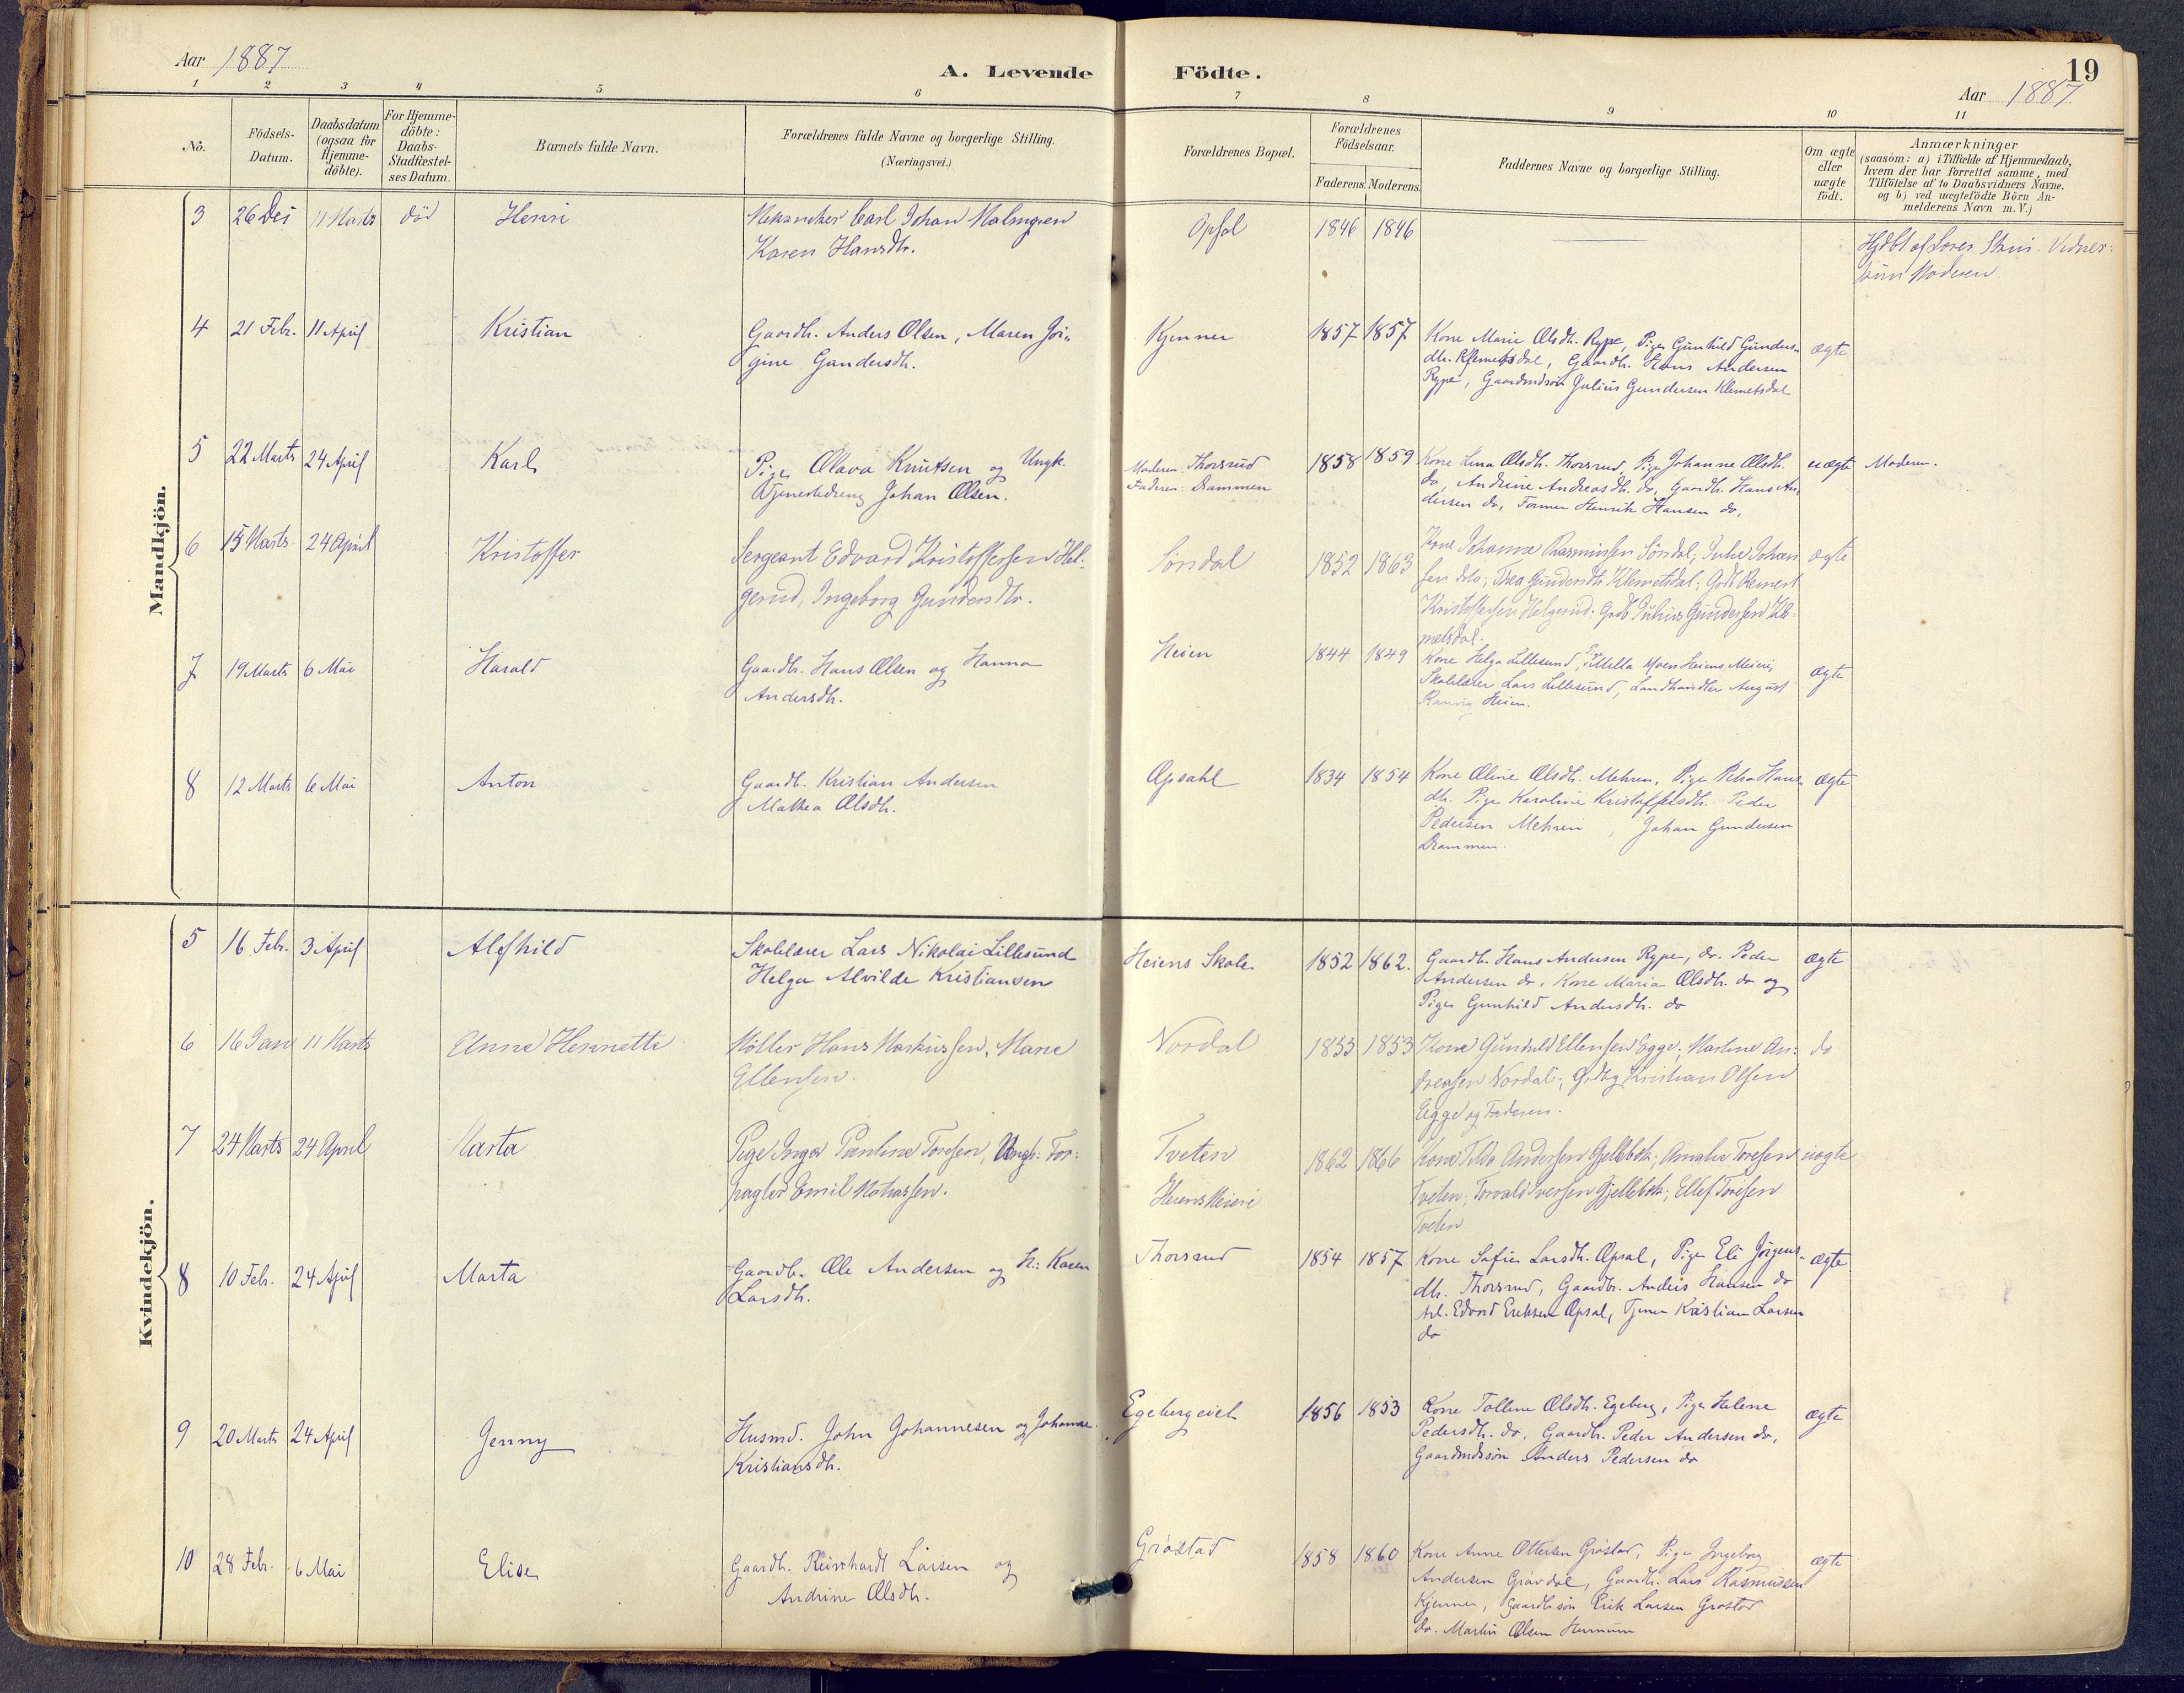 Aar 1887
A. Levende Födte.
19
Aar 1887.
1 2 3 4 5 6 7 8 9 10 11
No.
Födsels-Datum.
Daabsdatum (ogsaa for Hjemme-döbte).
For Hjemme-döbte: Daabs-Stadfæstel-ses Datum.
Barnets fulde Navn.
Forældrenes fulde Navne og borgerlige Stilling. (Næringsvei.)
Forældrenes Bopæl.
Forældrenes Födselsaar.
Faderens. Moderens.
Faddernes Navne og borgerlige Stilling.
Om ægte eller uægte födt.
Anmærkninger
(saasom: a) i Tilfælde af Hjemmedaab,
hvem der har forrettet samme, med
Tilföielse af to Daabsvidners Navne.
og b) ved uægtefödte Börn An-
melderens Navn m.V.)
Mandkjön.
3 26 Des 11 Marts död Henri
Carl Johan Malmgren
Karen Hansdtr.
Opsal 1846 1846
Moderen.
4 21 Febr. 11 April Kristian
Gaardb. Anders Olsen, Maren Jör-
gine Gundersdh.
Kjenner 1857 1857
Kone Marie Olsdh. Rype, Pige Gunhild Gunders-
dh. Klemetsdal, Gaardb. Hans Andersen
Rype, Gaardmdsön Julius Gundersen Klemetsdal
ægte
5 22 Marts 24 April Karl
Pige Olava Knutsen og Ungk.
Johan Olsen.
Moderen: Thorsrud
Faderen: Drammen
1858 1859
Kone Lina Olsdh. Thorsrud, Pige Johanne Olsdh.
do, Andrine Andreasdh. do, Gaardb. Hans An-
dersen do, Former Henrik Hansen do,
uægte Moderen.
6 15 Marts 24 April Kristoffer
Sergeant Edvard Kristoffersen Hel-
gerud, Ingeborg Gundersdtr.
Sörsdal 1852 1863
Kone Johanne Rasmussen Sörsdal; Julie Johan-
sen do; Thea Gundersdtr Klemetsdal; Gdb Reinert
Kristoffersen Helgerud. Gdb Julius Gundersen Kle-
metsdal.
ægte
7 19 Marts 6 Mai Harald
Gaardb. Hans Olsen og Hanna
Andersdh.
Heien 1844 1849
Kone Helga Lillesund, Pige Mella Moen Heiens Meieri,
Skolelærer Lars Lillesund, Landhandler August
Heien.
ægte
8 12 Marts 6 Mai Anton
Gaardb. Kristian Andersen
Mathea Olsdh.
Opsahl 1834 1854
Kone Oline Olsdh. Mehren, Pige Petra Hans-
dh. Pige Karoline Kristoffersdh. Peder
Pedersen Mehren, Johan Gundersen
Drammen.
ægte
Kvindekjön.
5 16 Febr. 3 April Alfhild
Skolelærer Lars Nikolai Lillesund
Helga Alvilde Kristiansen
Heiens Skole 1852 1862.
Gaardb. Hans Andersen Rype, do. Peder
Andersen do, Kone Maria Olsdh. do og
Pige Gunhild Andersdh. do
ægte
6 16 Jan 11 Marts Anne Henriette
Möller Hans Markussen, Marie
Ellensen.
Nordal 1853 1853
Kone Gunhild Ellensen Egge; Martine An-
dreasen Nordal; Gdbg Kristian Olsen
Egge og Faderen.
do
7 24 Marts 24 April Marta
Pige Inga Pauline Toresen, Ungk. For-
pagter Emil Mathissen.
Tveten
Heiens Meieri
1862 1866
Kone Tilda Andersen Gjellebek; Amalie Toresen
Tveten; Torvald Iversen Gjellebek; Ellef Toresen
Tveten
uægte
8 10 Febr. 24 April Marta
Gaardb. Ole Andersen og H: Karen
Larsdh.
Thorsrud 1854 1857
Kone Sofie Larsdh. Opsal, Pige Eli Jörgens-
dh. Thorsrud, Gaardbr. Anders Hansen do
Edvard Eriksen Opsal, Tjener Kristian Larsen
do
ægte
9 20 Marts 24 April Jenny
Husmd. John Johannesen og Johanne
Kristiansdh.
Egebergeiet 1856 1853
Kone Toline Olsdh. Egeberg, Pige Helene
Pedersdh. do, Gaardb. Peder Andersen do,
Gaardmdssön Anders Pedersen do
ægte
10 28 Febr. 6 Mai Elise
Gaardb. Reinhardt Larsen og
Andrine Olsdh.
Gröstad 1858 1860
Kone Anne Ottersen Gröstad, Pige Ingeborg
Andersen Grövdal, Gaardb. Lars Rasmussen
Kjenner, Gaardb.sön Erik Larsen Gröstad
do. Martin Olsen
ægte